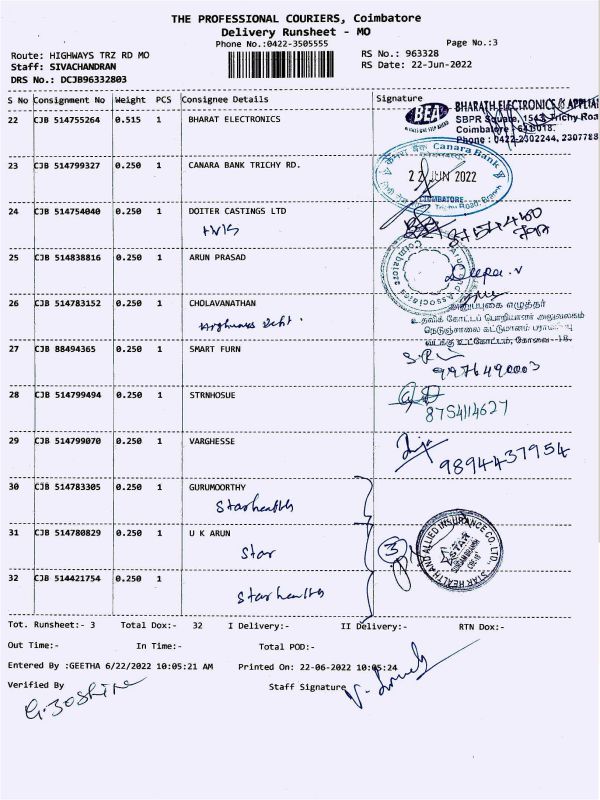 THE PROFESSIONAL COURIERS, Coimbatore
Delivery Runsheet - MO
Phone No.:0422-3505555
Page No.:3
Route: HIGHWAYS TRZ RD MO
RS No.: 963328
Staff: SIVACHANDRAN
RS Date: 22-Jun-2022
DRS No.: DCJB96332803
S No Consignment No Weight PCS Consignee Details Signature
22 CJB 514755264 0.515 1 BHARAT ELECTRONICS
BEA BHARATH ELECTRONICS & APPLIA
SBPR Square, 154 Trichy Roa
Coimbatore
Phone : 0422-2302244, 2307788
23 CJB 514799327 0.250 1 CANARA BANK TRICHY RD.
Canara Bank
22 JUN 2022
COIMBATORE
Trichy Road, Branch
24 CJB 514754040 0.250 1 DOITER CASTINGS LTD
25 CJB 514838816 0.250 1 ARUN PRASAD
Associates Coimbatore
Deepa. V
26 CJB 514783152 0.250 1 CHOLAVANATHAN
Highways Dept.
எழுத்தர்
உதவிக் கோட்டப் பொறியாளர் அலுவலகம்
நெடுஞ்சாலை கட்டுமானம்
வடக்கு உட்கோட்டம், கோவை-18.
27 CJB 88494365 0.250 1 SMART FURN
9976490003
28 CJB 514799494 0.250 1 STRNHOSUE
8754114627
29 CJB 514799070 0.250 1 VARGHESSE
9894437954
30 CJB 514783305 0.250 1 GURUMOORTHY
Starhealth
31 CJB 514780829 0.250 1 U K ARUN
Star
3
STAR HEALTH AND ALLIED INSURANCE CO. LTD.
STAR
32 CJB 514421754 0.250 1
Starhealth
Tot. Runsheet:- 3 Total Dox:- 32 I Delivery:- II Delivery:- RTN Dox:-
Out Time:- In Time:- Total POD:-
Entered By :GEETHA 6/22/2022 10:05:21 AM Printed On: 22-06-2022 10:05:24
Verified By Staff Signature